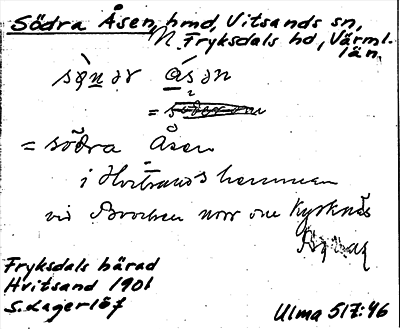 Södra Åsen, hmd, Vitsands sn,
N. Fryksdals hd, Värml.
län.
åsən
=
= södra Åsen
i Hvitsands hemman
vid norr om
Fryksdals härad
Hvitsand 1901
S. Lagerlöf
Ulma 517:46